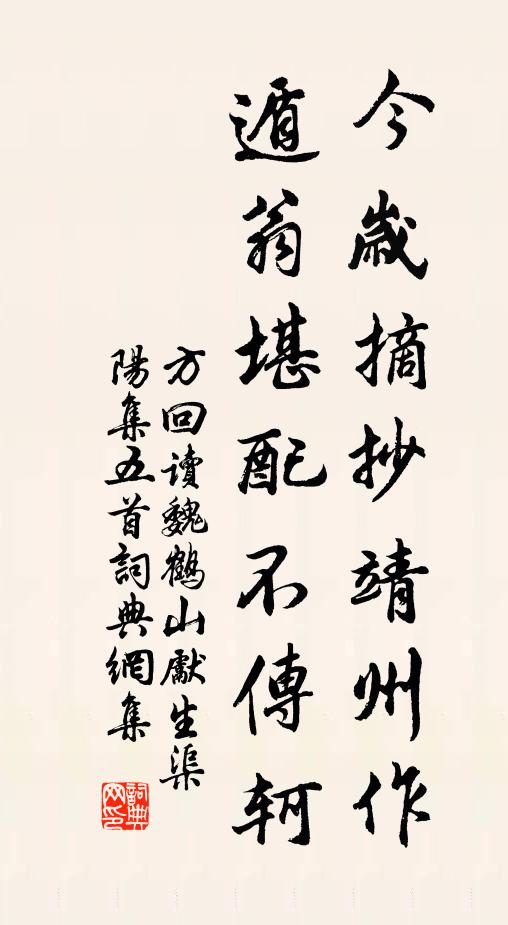 今歲摘抄靖州作
遁翁堪配不傳軻
方回讀魏鶴山獻生渠
陽集五首詞典網集
詞典网印